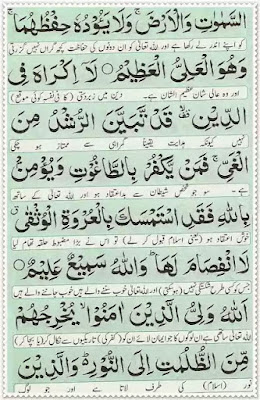 السَّمٰوٰتِ وَالْاَرْضَ ۚ وَلَا يَـُٔوْدُهٗ حِفْظُهُمَا ۚ
کو اپنے اندر لے رکھا ہے اور اللہ تعالیٰ کو ان دونوں کی حفاظت کچھ گراں نہیں گزرتی
وَهُوَ الْعَلِیُّ الْعَظِيْمُ ۝ لَاۤ اِكْرَاهَ فِی
اور وہ عالی شان عظیم الشان ہے۔ دین میں زبردستی ( کا فی نفسہٖ کوئی موقع)
الدِّيْنِ ۙ قَدْ تَّبَيَّنَ الرُّشْدُ مِنَ
نہیں کیونکہ ہدایت یقیناً گمراہی سے ممتاز ہو چکی
الْغَیِّ ۚ فَمَنْ يَّكْفُرْ بِالطَّاغُوْتِ وَيُؤْمِنْۢ
ہے۔ سو جو شخص شیطان سے بداعتقاد ہو اور اللہ تعالیٰ کے ساتھ
بِاللّٰهِ فَقَدِ اسْتَمْسَكَ بِالْعُرْوَةِ الْوُثْقٰی ۗ
خوش اعتقاد ہو (یعنی اسلام قبول کر لے) تو اس نے بڑا مضبوط حلقہ تھام لیا
لَا انْفِصَامَ لَهَا ؕ وَاللّٰهُ سَمِيْعٌ عَلِيْمٌ ۝
جس کو کسی طرح شکستگی نہیں (ہو سکتی) اور اللہ تعالیٰ خوب سننے والے ہیں خوب جاننے والے ہیں
اَللّٰهُ وَلِیُّ الَّذِيْنَ اٰمَنُوْا ۙ يُخْرِجُهُمْ
اللہ تعالیٰ ساتھی ہے ان لوگوں کا جو ایمان لائے ان کو (کفر کی) تاریکیوں سے نکال کر (یا بچا کر)
مِّنَ الظُّلُمٰتِ اِلَی النُّوْرِ ؕ وَالَّذِيْنَ
نور (اسلام) کی طرف لاتا ہے اور جو لوگ